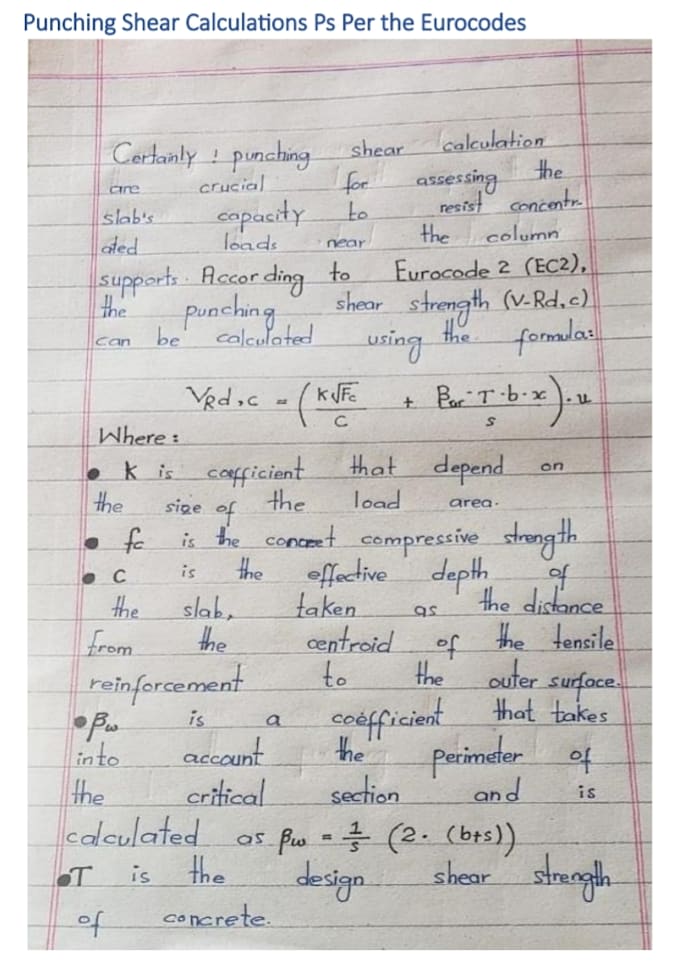 Punching Shear Calculations Ps Per the Eurocodes
Certainly ! punching shear calculation
are crucial for assessing the
slab's capacity to resist concentr-
ated loads near the column
supports. According to Eurocode 2 (EC2),
the punching shear strength (V-Rd,c)
can be calculated using the formula:
VRd,c = (k√Fc / c + βw·T·b·x / s)·u
Where :
• k is coefficient that depend on
the size of the load area.
• fc is the concreet compressive strength
• c is the effective depth of
the slab, taken as the distance
from the centroid of the tensile
reinforcement to the outer surface.
• βw is a coefficient that takes
into account the perimeter of
the critical section and is
calculated as βw = 1/s (2. (b+s))
• T is the design shear strength
of concrete.